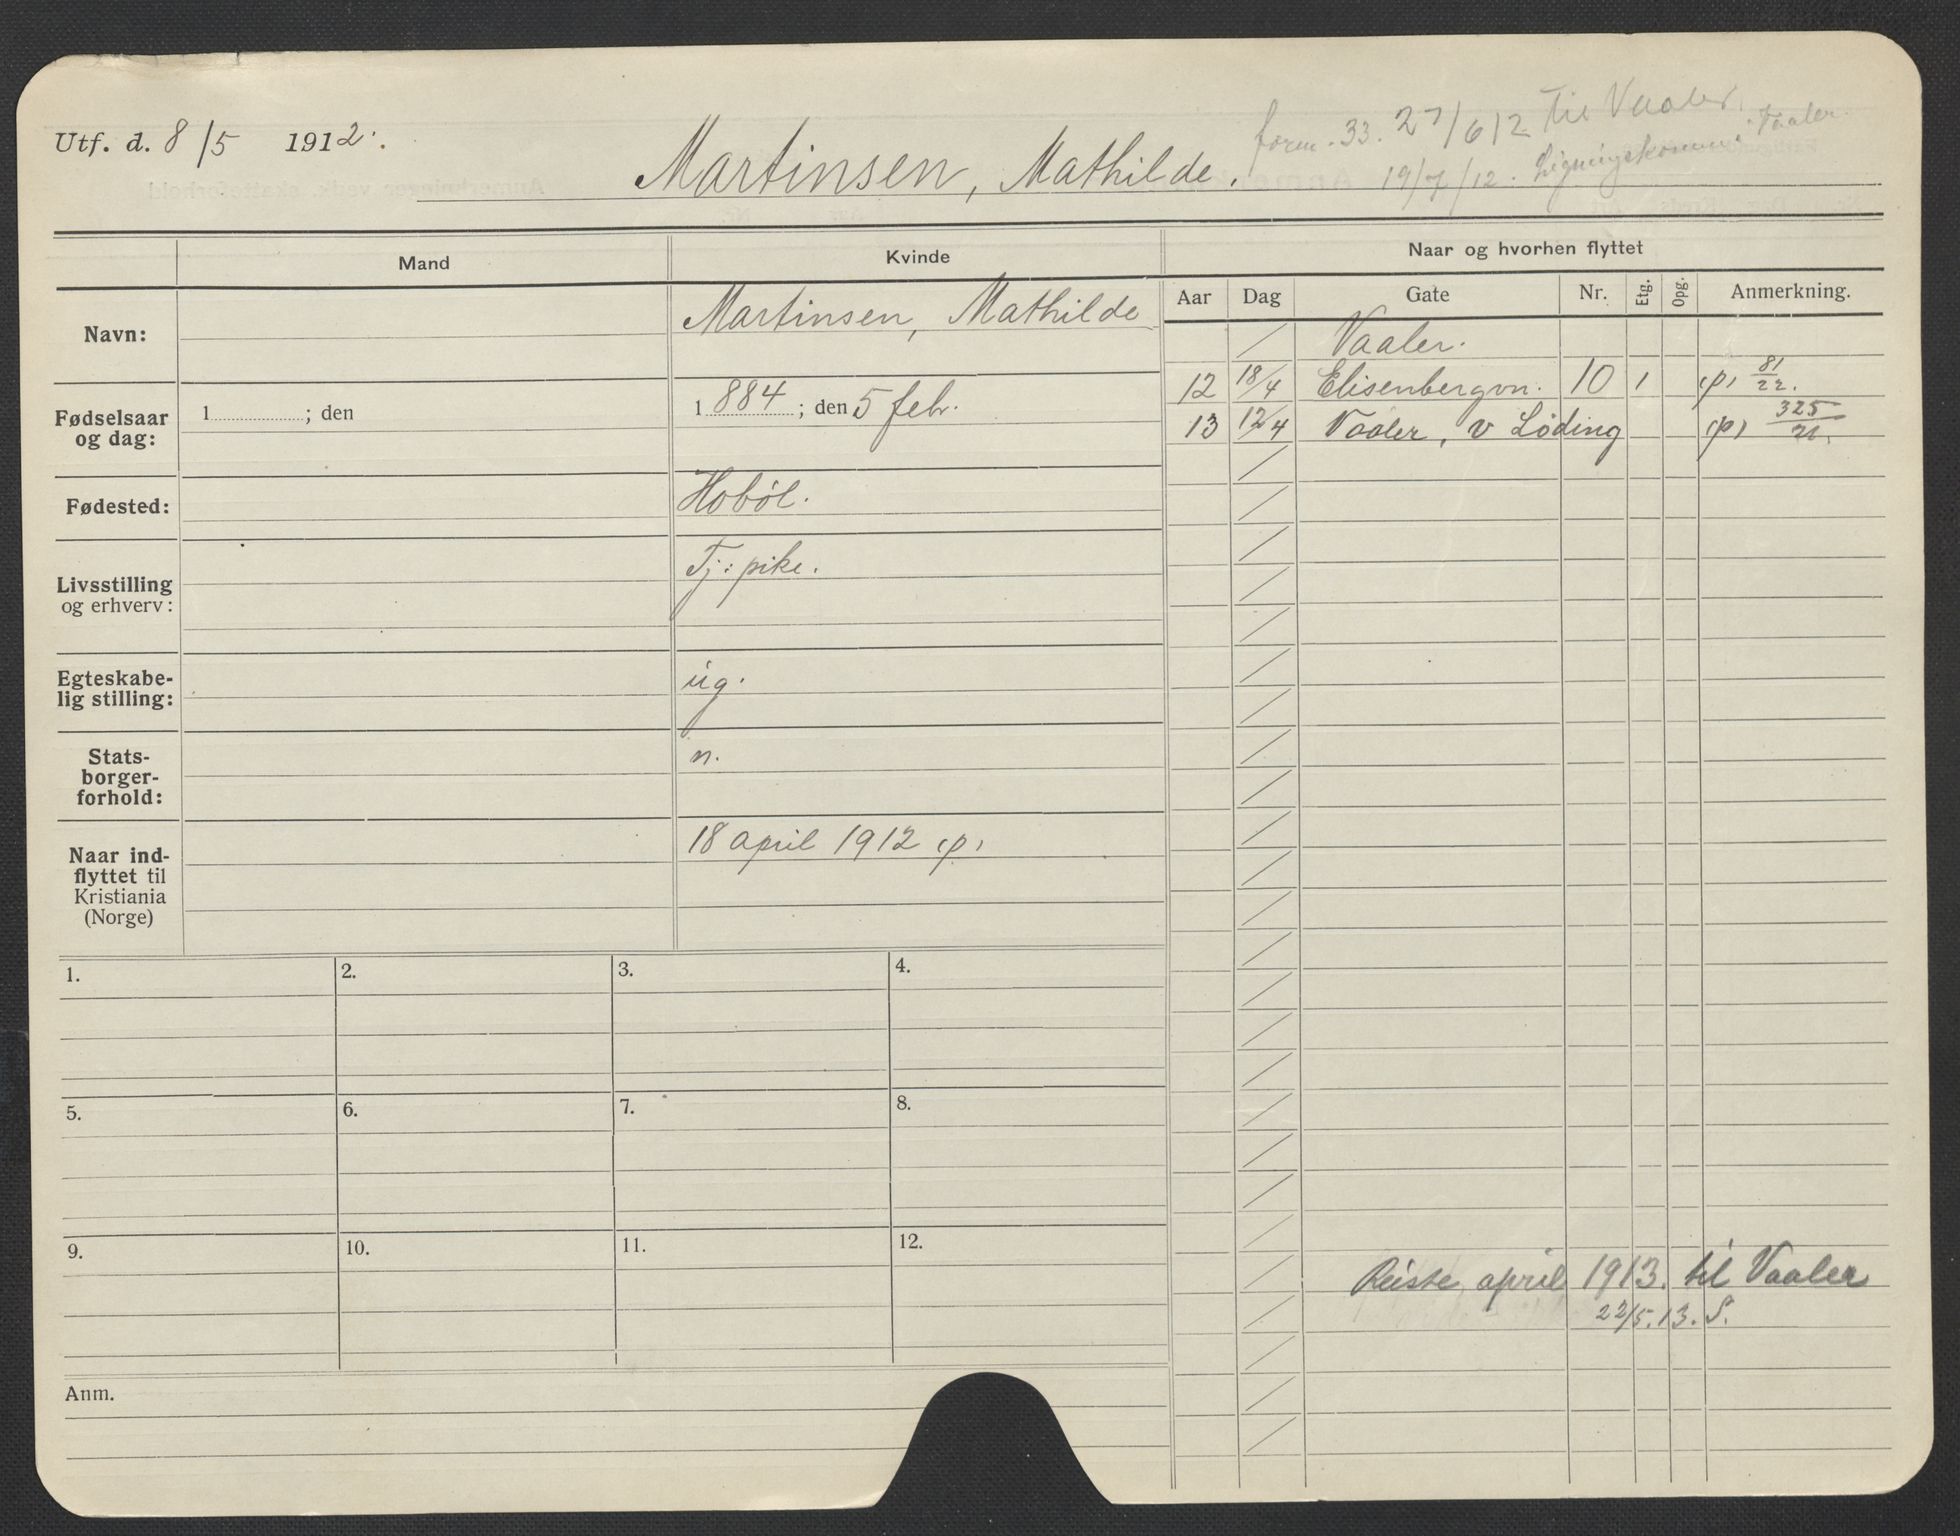 Utf. d. 8/5 1912.
Martinsen, Mathilde.
form. 33. 27/6 12 Til Vaaler.
19/7/12. Ligningskomm. Vaaler
Mand
Kvinde
Naar og hvorhen flyttet
Aar Dag Gate Nr. Etg. Opg. Anmerkning.
Navn:
Martinsen, Mathilde
Vaaler.
12 18/4 Elisenbergvn. 10 1 (p) 81/22.
13 12/4 Vaaler, v Løding (p) 325/21.
Fødselsaar
og dag:
1 ; den
1 884 ; den 5 febr.
Fødested:
Hobøl.
Livsstilling
og erhverv:
Tj: pike.
Egteskabe-
lig stilling:
ug.
Stats-
borger-
forhold:
n.
Naar ind-
flyttet til
Kristiania
(Norge)
18 april 1912 (p)
1. 2. 3. 4.
5. 6. 7. 8.
9. 10. 11. 12.
Reiste april 1913. til Vaaler
22/5.13. S.
Anm.